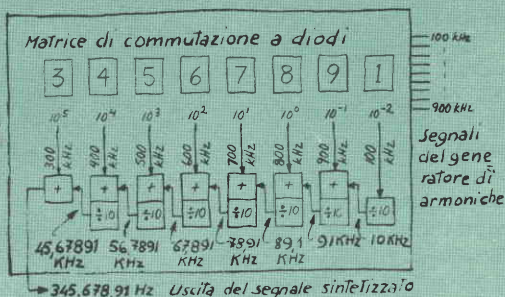 Matrice di commutazione a diodi
100 kHz
3 4 5 6 7 8 9 1
10⁵ 10⁴ 10³ 10² 10¹ 10⁰ 10⁻¹ 10⁻²
900 kHz
300 kHz 400 kHz 500 kHz 600 kHz 700 kHz 800 kHz 900 kHz 100 kHz
Segnali
del gene
ratore di
armoniche
+ + + + + + +
÷10 ÷10 ÷10 ÷10 ÷10 ÷10 ÷10
45,67891 56,7891 67,891 78,91 89,1 91 KHz 10 KHz
KHz KHz KHz KHz KHz
345.678.91 Hz Uscita del segnale sintetizzato